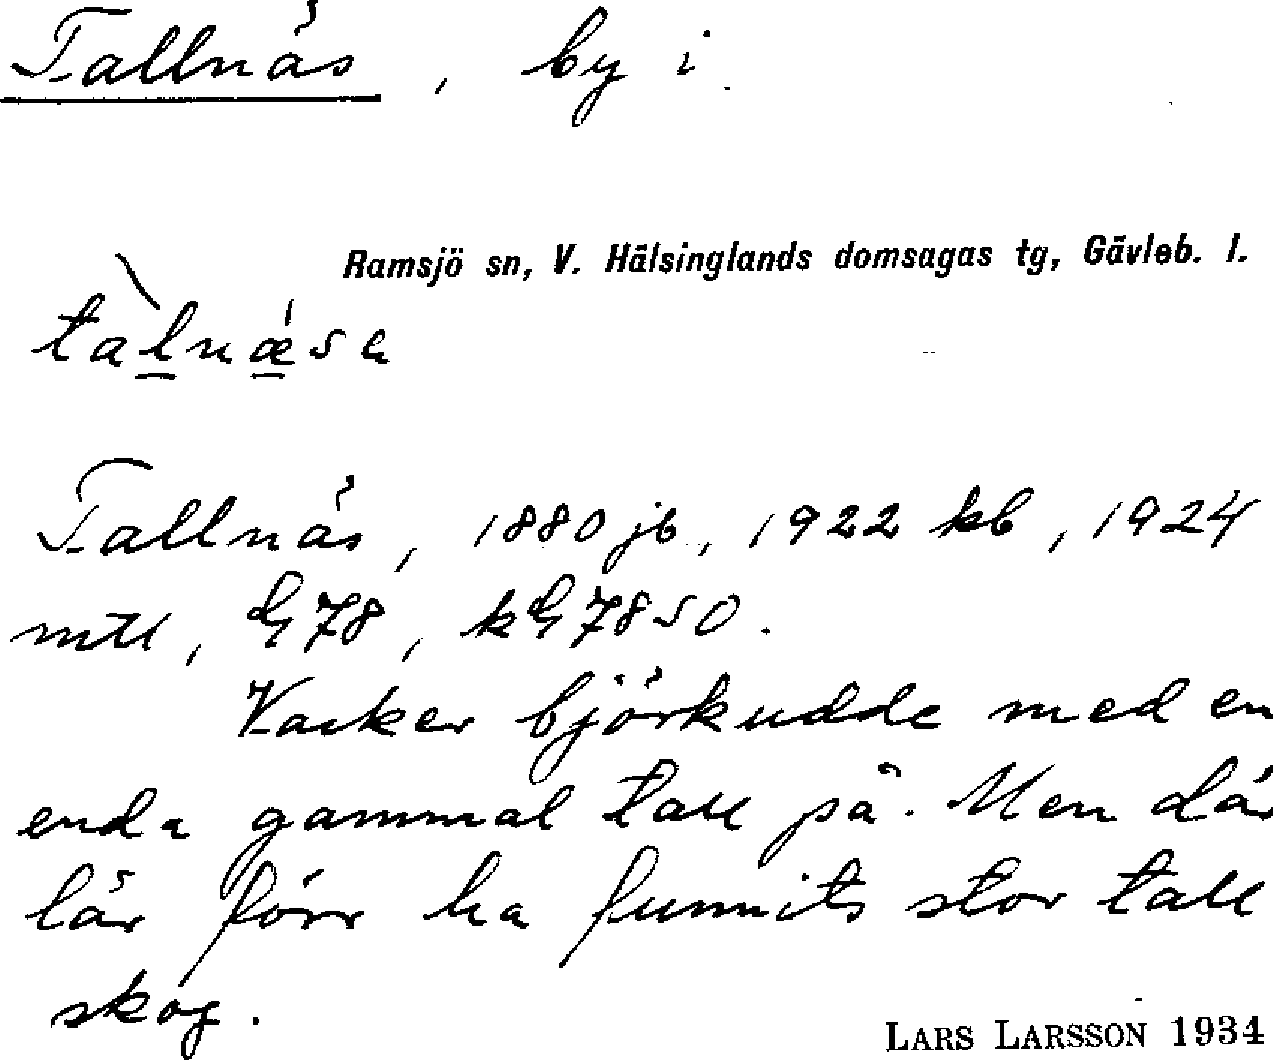 Tallnäs, by i
Ramsjö sn, V. Hälsinglands domsagas tg, Gävleb. l.
tàlnǽsa
Tallnäs, 1880 jb, 1922 kb, 1924
mtl, G78, kG7850.
Vacker björkudde med en
enda gammal tall på. Men där
lär förr ha funnits stor tall
skog.
LARS LARSSON 1934